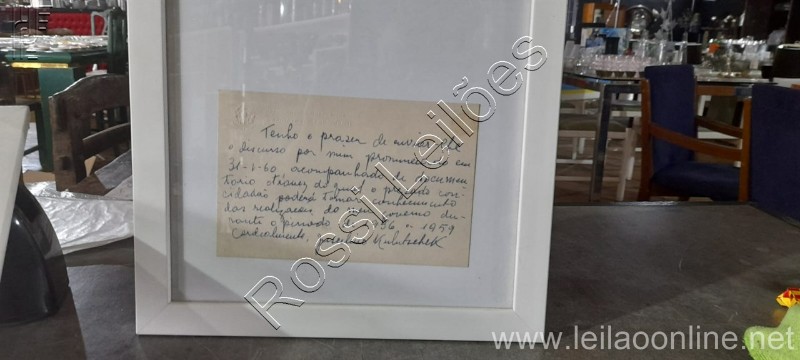 Tenho o prazer de enviar-lhe
o discurso por mim pronunciado em
31-1-60, acompanhado de documen
tario atravez do qual o prezado con-
cidadão poderá tomar conhecimento
das realizações do meu governo du-
rante o periodo de 1956 a 1959
Cordialmente, Juscelino Kubitschek
Rossi Leilões
www.leilaoonline.net